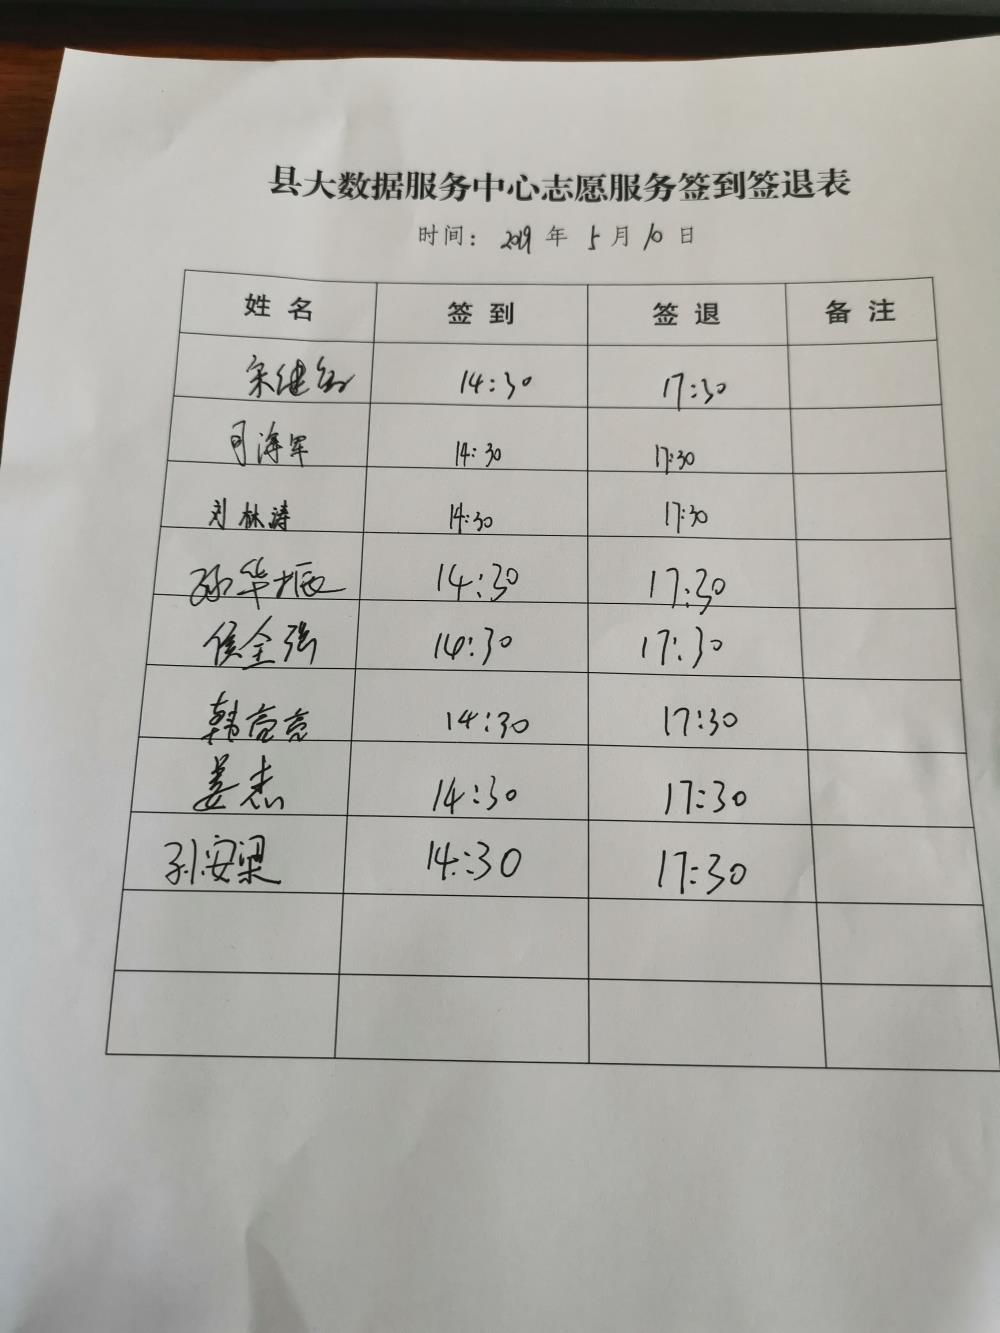 县大数据服务中心志愿服务签到签退表
时间： 2019 年 5 月 10 日
姓 名 签 到 签 退 备 注
宋继 14:30 17:30
司海军 14:30 17:30
刘林涛 14:30 17:30
孙华振 14:30 17:30
侯全强 14:30 17:30
韩亮亮 14:30 17:30
姜杰 14:30 17:30
孙安梁 14:30 17:30